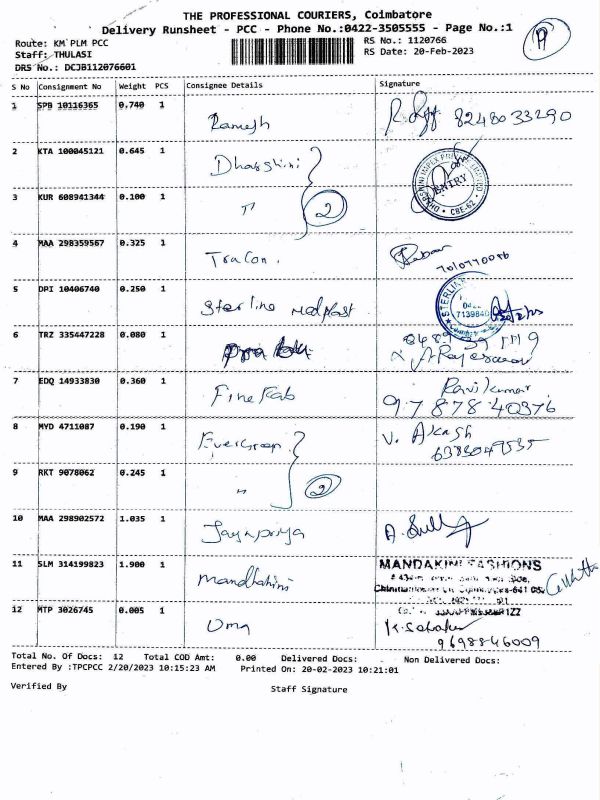 THE PROFESSIONAL COURIERS, Coimbatore
Delivery Runsheet - PCC - Phone No.:0422-3505555 - Page No.:1
Route: KM PLM PCC RS No.: 1120766
Staff: THULASI RS Date: 20-Feb-2023
DRS No.: DCJB112076601
S No Consignment No Weight PCS Consignee Details Signature
1 SPB 10116365 0.740 1 Ramesh 8248033290
2 KTA 100045121 0.645 1 Dharshini ENTRY
3 KUR 608941344 0.100 1 " 2 CBE-62
4 MAA 298359567 0.325 1 Tracon.
5 DPI 10406740 0.250 1 Sterling medplast
6 TRZ 335447228 0.080 1
7 EDQ 14933830 0.360 1 Fine Fab Ravikumar
97878 40376
8 MYD 4711087 0.190 1 Evergreen V. Akash
9 RKT 9078062 0.245 1 " 2
10 MAA 298902572 1.035 1 Jayapriya
11 SLM 314199823 1.900 1 Mandhakini MANDAKINI FASHIONS
12 MTP 3026745 0.005 1 Uma
9698846009
Total No. Of Docs: 12 Total COD Amt: 0.00 Delivered Docs: Non Delivered Docs:
Entered By :TPCPCC 2/20/2023 10:15:23 AM Printed On: 20-02-2023 10:21:01
Verified By Staff Signature